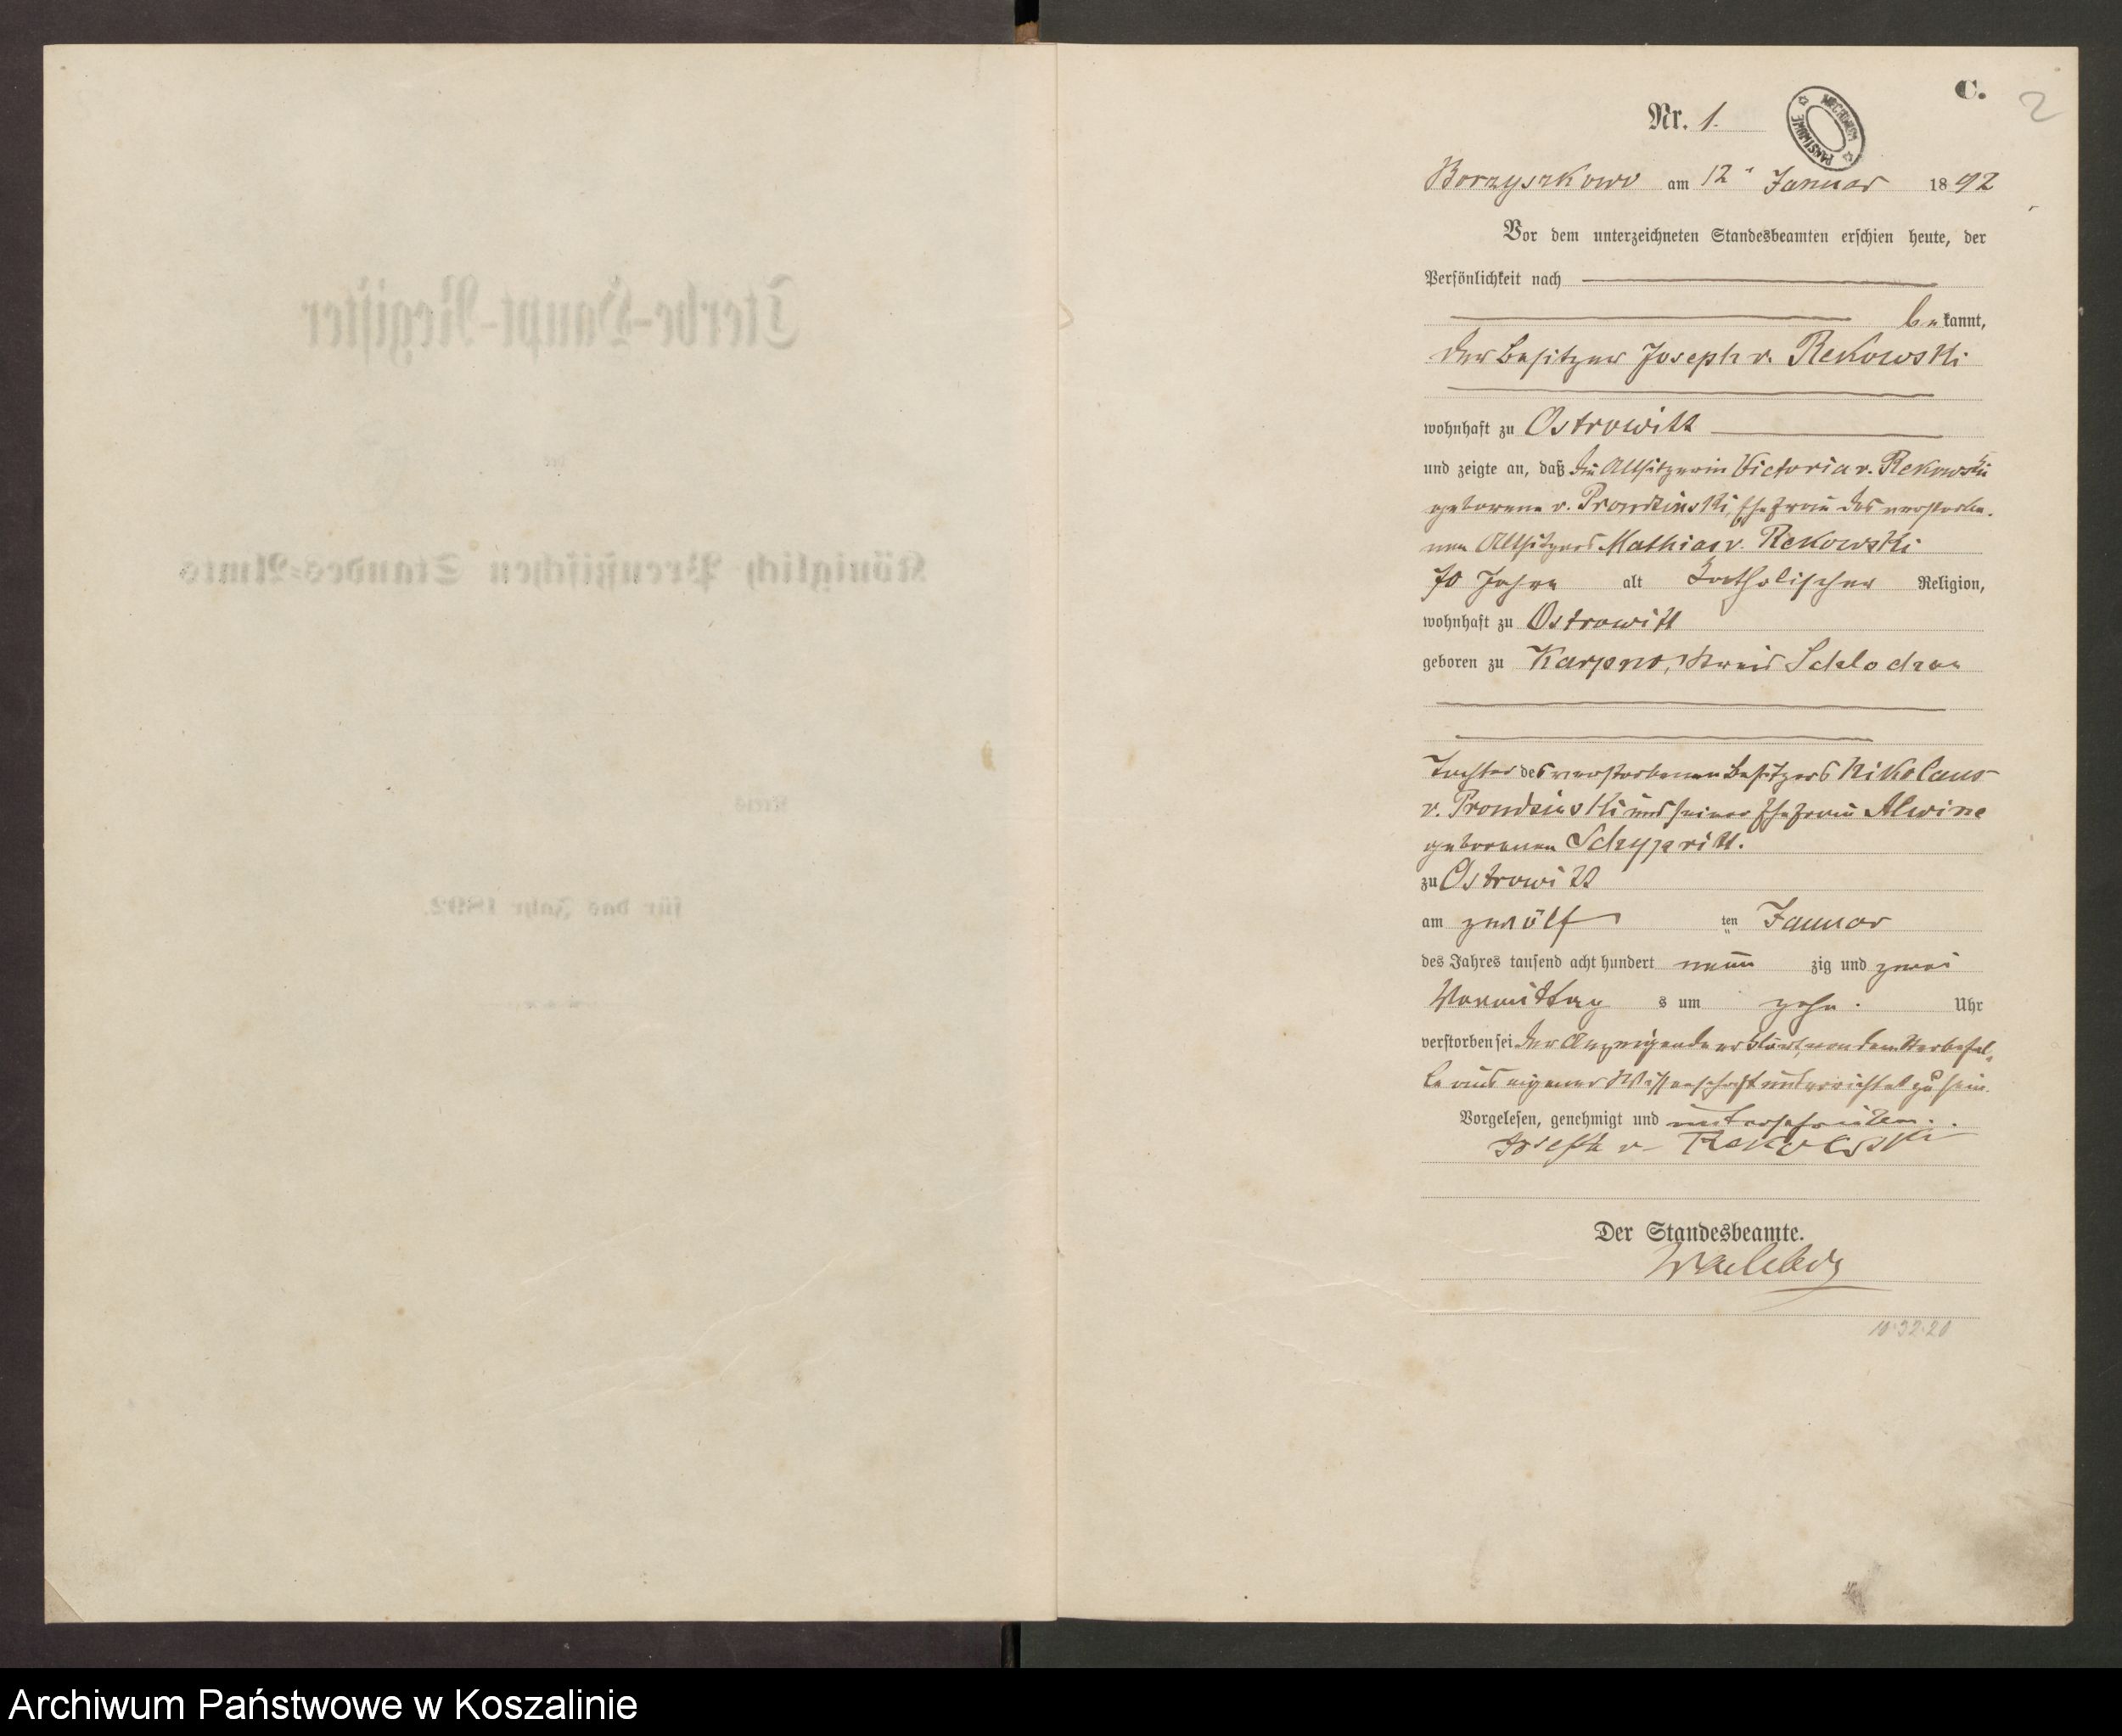 Sterbe-Haupt-Register
des
Königlich Preußischen Standes-Amts
Kreis
für das Jahr 1892.
C.
2
Nr. 1.
ARCHIWUM PAŃSTWOWE
Borzyszkowo am 12" Januar 1892
Vor dem unterzeichneten Standesbeamten erschien heute, der
Persönlichkeit nach
bekannt,
der Besitzer Joseph v. Rekowski
wohnhaft zu Ostrowitt
und zeigte an, daß die Altsitzerin Victoria v. Rekowski
geborene v. Prondzinski, Ehefrau des verstorbe-
nen Altsitzers Mathias v. Rekowski
70 Jahre alt katholischer Religion,
wohnhaft zu Ostrowitt
geboren zu Karpno, Kreis Schlochau
Tochter des verstorbenen Besitzers Nikolaus
v. Prondzinski und seiner Ehefrau Alwine
geborenen
zu Ostrowitt
am zwölf ten Januar
des Jahres tausend acht hundert neun zig und zwei
Vormittag s um zehn Uhr
verstorben sei. Der Anzeigende erklärt, von dem Sterbefal-
le aus eigener Wissenschaft unterrichtet zu sein.
Vorgelesen, genehmigt und unterschrieben.
Joseph v. Rekowski
Der Standesbeamte.
10.32.20
Archiwum Państwowe w Koszalinie